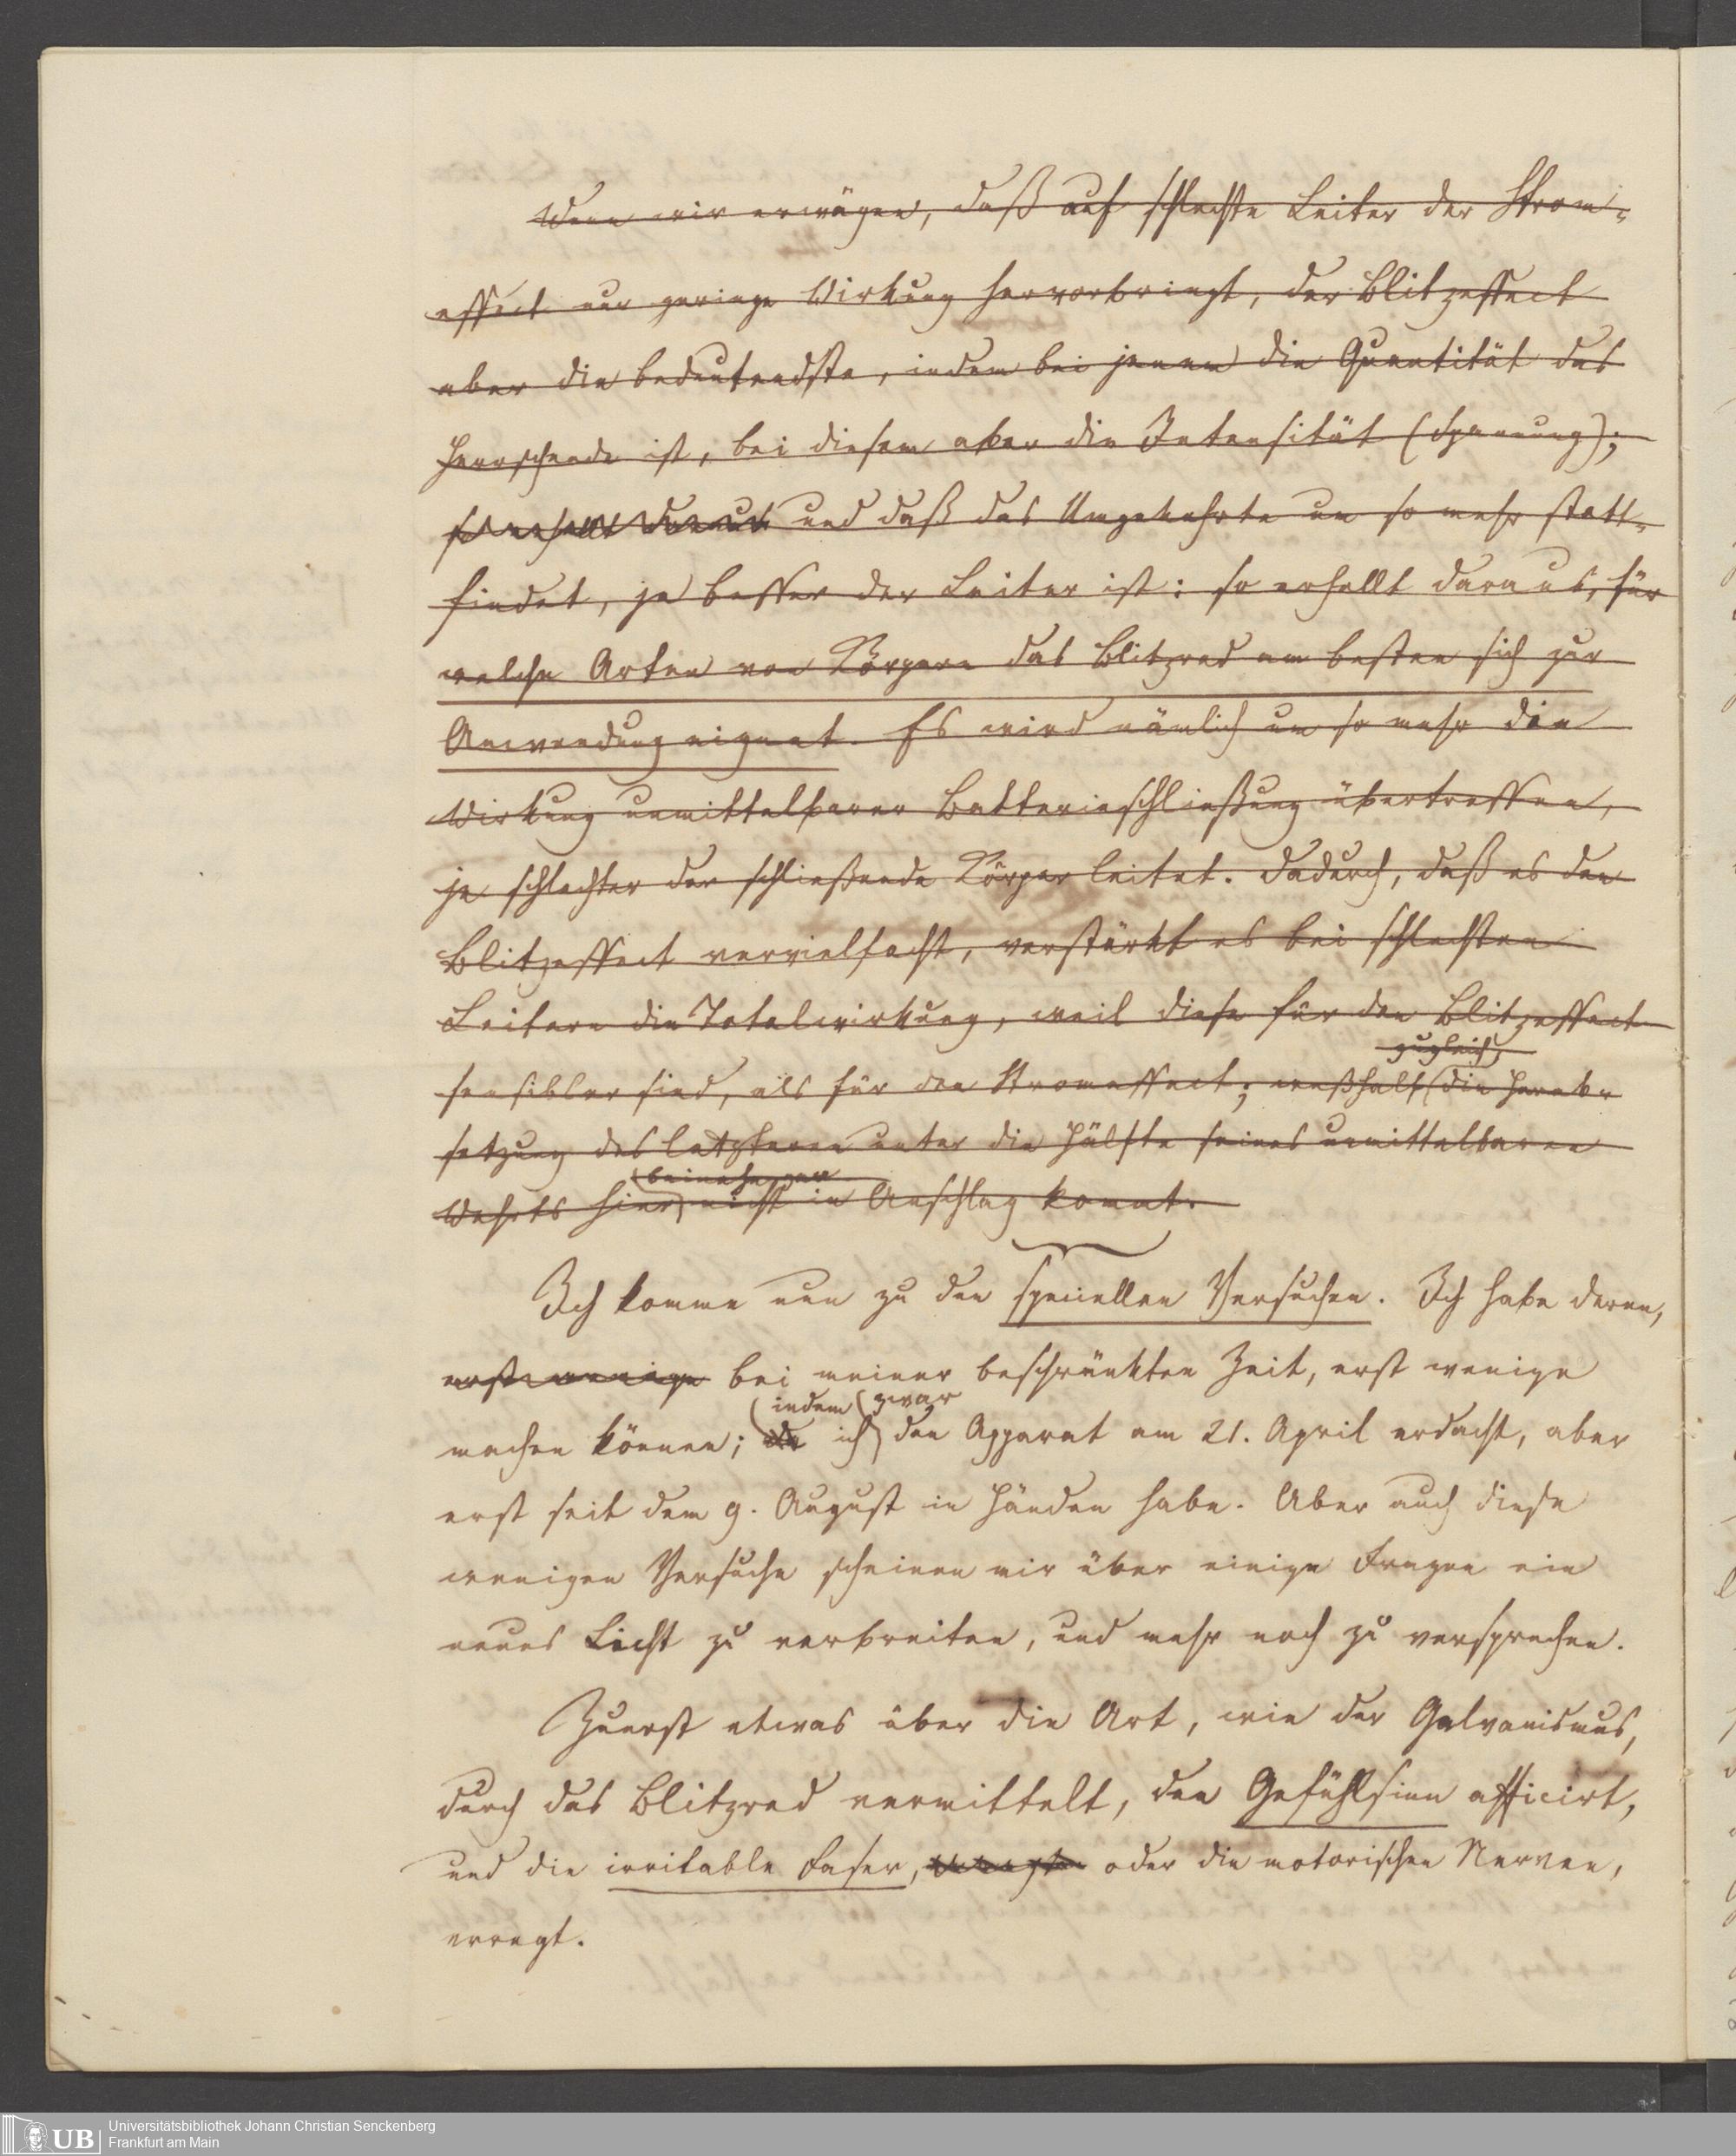 Wenn wir erwägen, daß auf schlechte Leiter der Strom-
effect nur geringe Wirkung hervorbringt, der Blitzeffect
aber die bedeutendste, indem bei jenem die Quantität das
Herrschende ist, bei diesem aber die Intensität (Spannung);
so erhellt daraus und daß das Umgekehrte um so mehr statt-
findet, je besser der Leiter ist: so erhellt daraus, für
welche Arten von Körpern das Blitzrad am besten sich zur
Anwendung eignet. Es wird nämlich um so mehr die
Wirkung unmittelbarer Batterieschließung übertreffen,
je schlechter der schließende Körper leitet. Dadurch, daß es den
Blitzeffect vervielfacht, verstärkt es bei schlechten
Leitern die Totalwirkung, weil diese für den Blitzeffect
zugleich
sensibler sind, als für den Stromeffect; weßhalb die Herab-
setzung des letzteren unter die Hälfte seines unmittelbaren
beinahe gar
Wehrts hier nicht in Anschlag kommt.
Ich komme nun zu den speciellen Versuchen. Ich habe deren,
erst wenige bei meiner beschränkten Zeit, erst wenige
indem zwar
machen können; da ich den Apparat am 21. April erdacht, aber
erst seit dem 9. August in Händen habe. Aber auch diese
wenigen Versuche scheinen mir über einige Fragen ein
neues Licht zu verbreiten, und mehr noch zu versprechen.
Zuerst etwas über die Art, wie der Galvanismus,
durch das Blitzrad vermittelt, den Gefühlsinn afficirt,
und die irritable Faser, oder die motorischen Nerven,
erregt.
UB Universitätsbibliothek Johann Christian Senckenberg
Frankfurt am Main